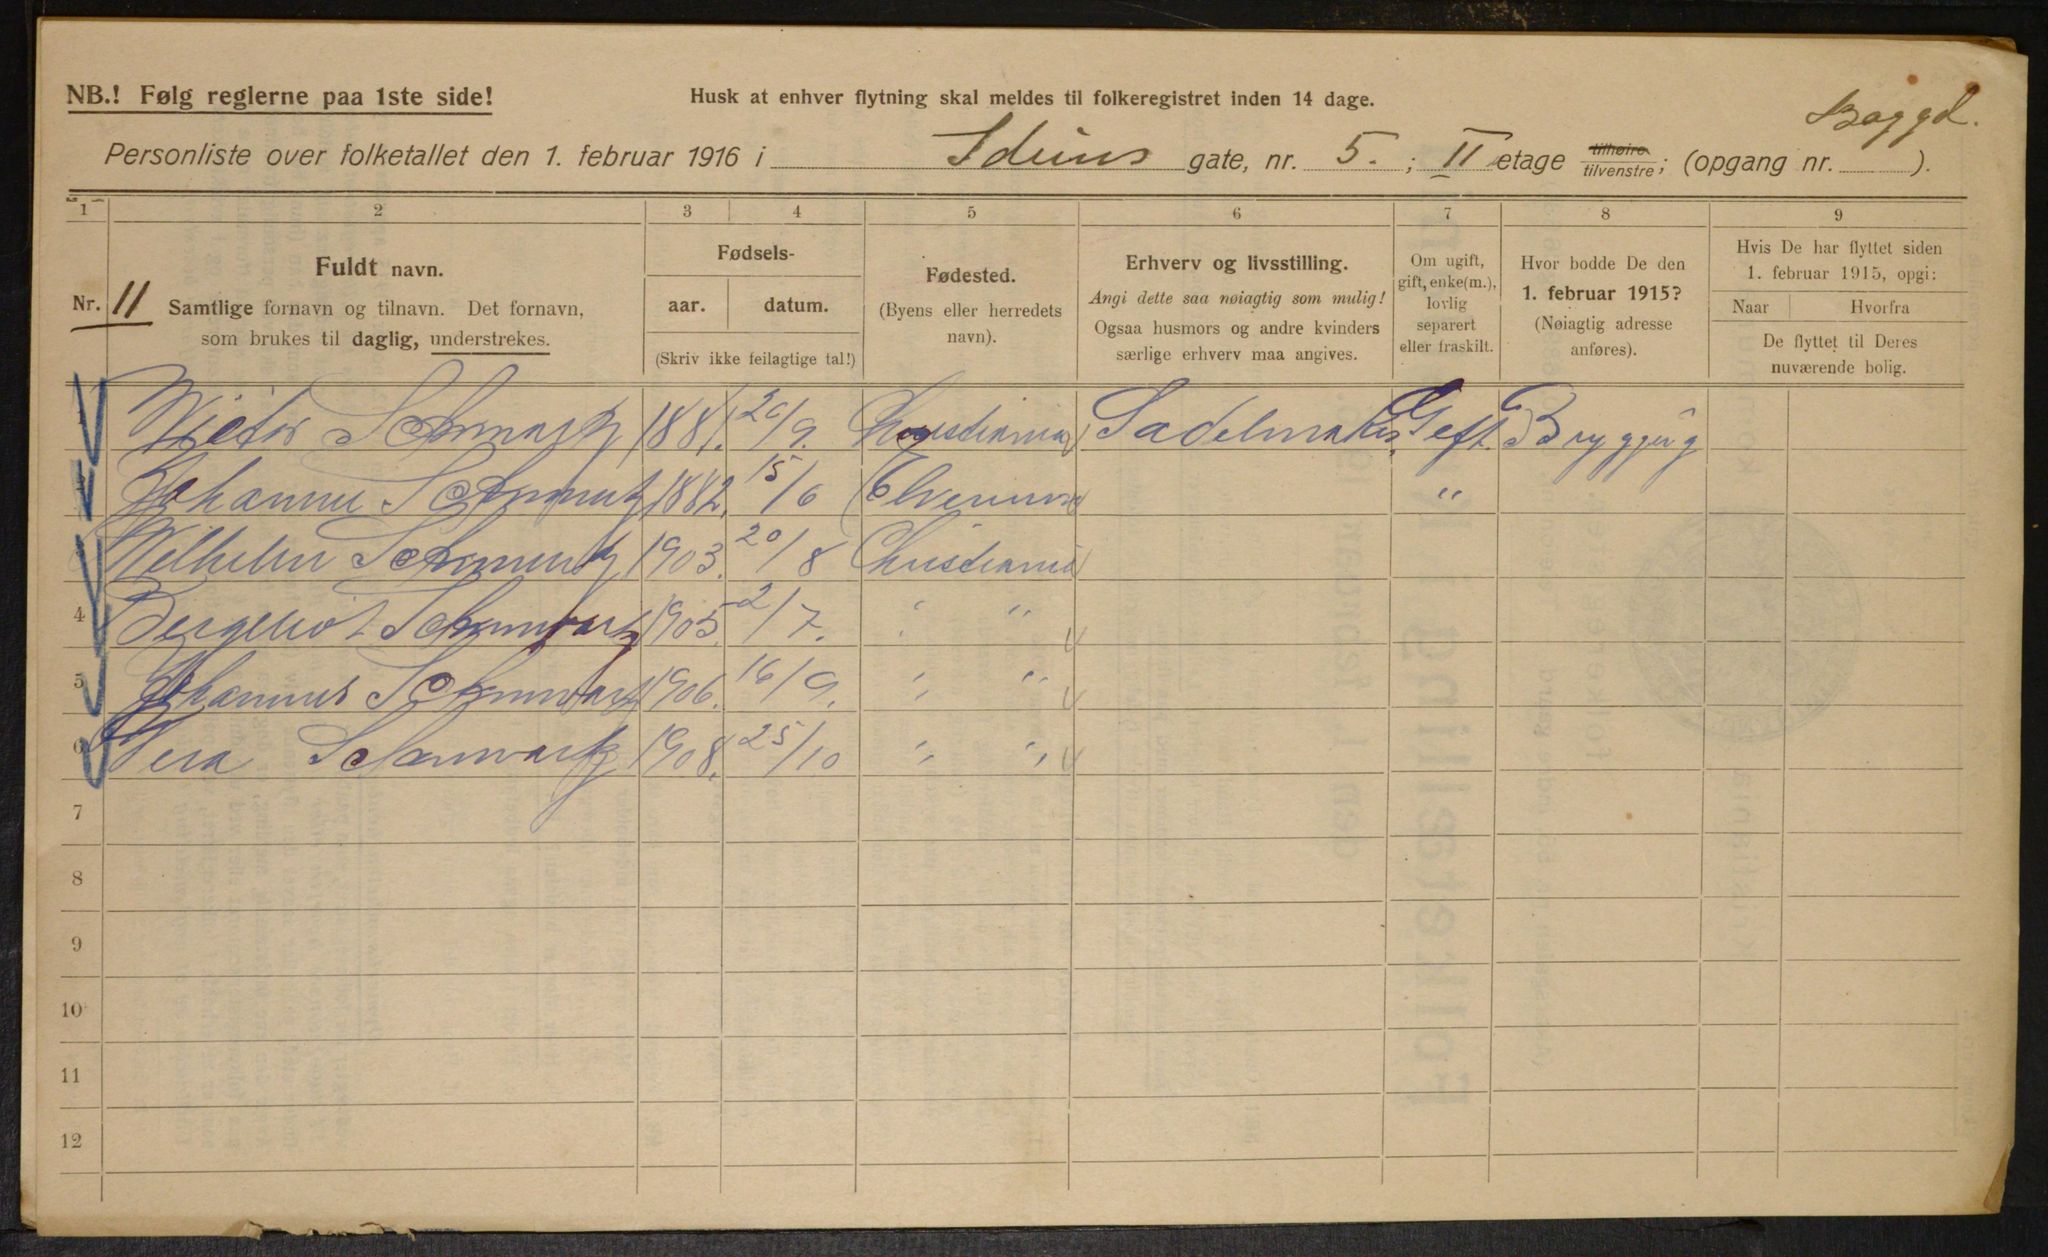 NB.! Følg reglerne paa 1ste side!
Husk at enhver flytning skal meldes til folkeregistret inden 14 dage.
Baggd.
Personliste over folketallet den 1. februar 1916 i Iduns gate, nr. 5. ; II etage tilhøire tilvenstre; (opgang nr. ).
1 2 3 4 5 6 7 8 9
Nr. 11
Fuldt navn.
Samtlige fornavn og tilnavn. Det fornavn,
som brukes til daglig, understrekes.
Fødsels-
aar. datum.
(Skriv ikke feilagtige tal!)
Fødested.
(Byens eller herredets
navn).
Erhverv og livsstilling.
Angi dette saa nøiagtig som mulig!
Ogsaa husmors og andre kvinders
særlige erhverv maa angives.
Om ugift,
gift, enke(m.),
lovlig
separert
eller fraskilt.
Hvor bodde De den
1. februar 1915?
(Nøiagtig adresse
anføres).
Hvis De har flyttet siden
1. februar 1915, opgi:
Naar Hvorfra
De flyttet til Deres
nuværende bolig.
1881. 20/9. Christiania Sadelmaker Gift.
1882. 15/6 Elverum "
Wilhelm 1903. 20/8 Christiania
4 1905 2/7. " "
5 Johannes 1906. 16/9. " "
6 Vera Schmvartz 1908. 25/10 " "
7
8
9
10
11
12